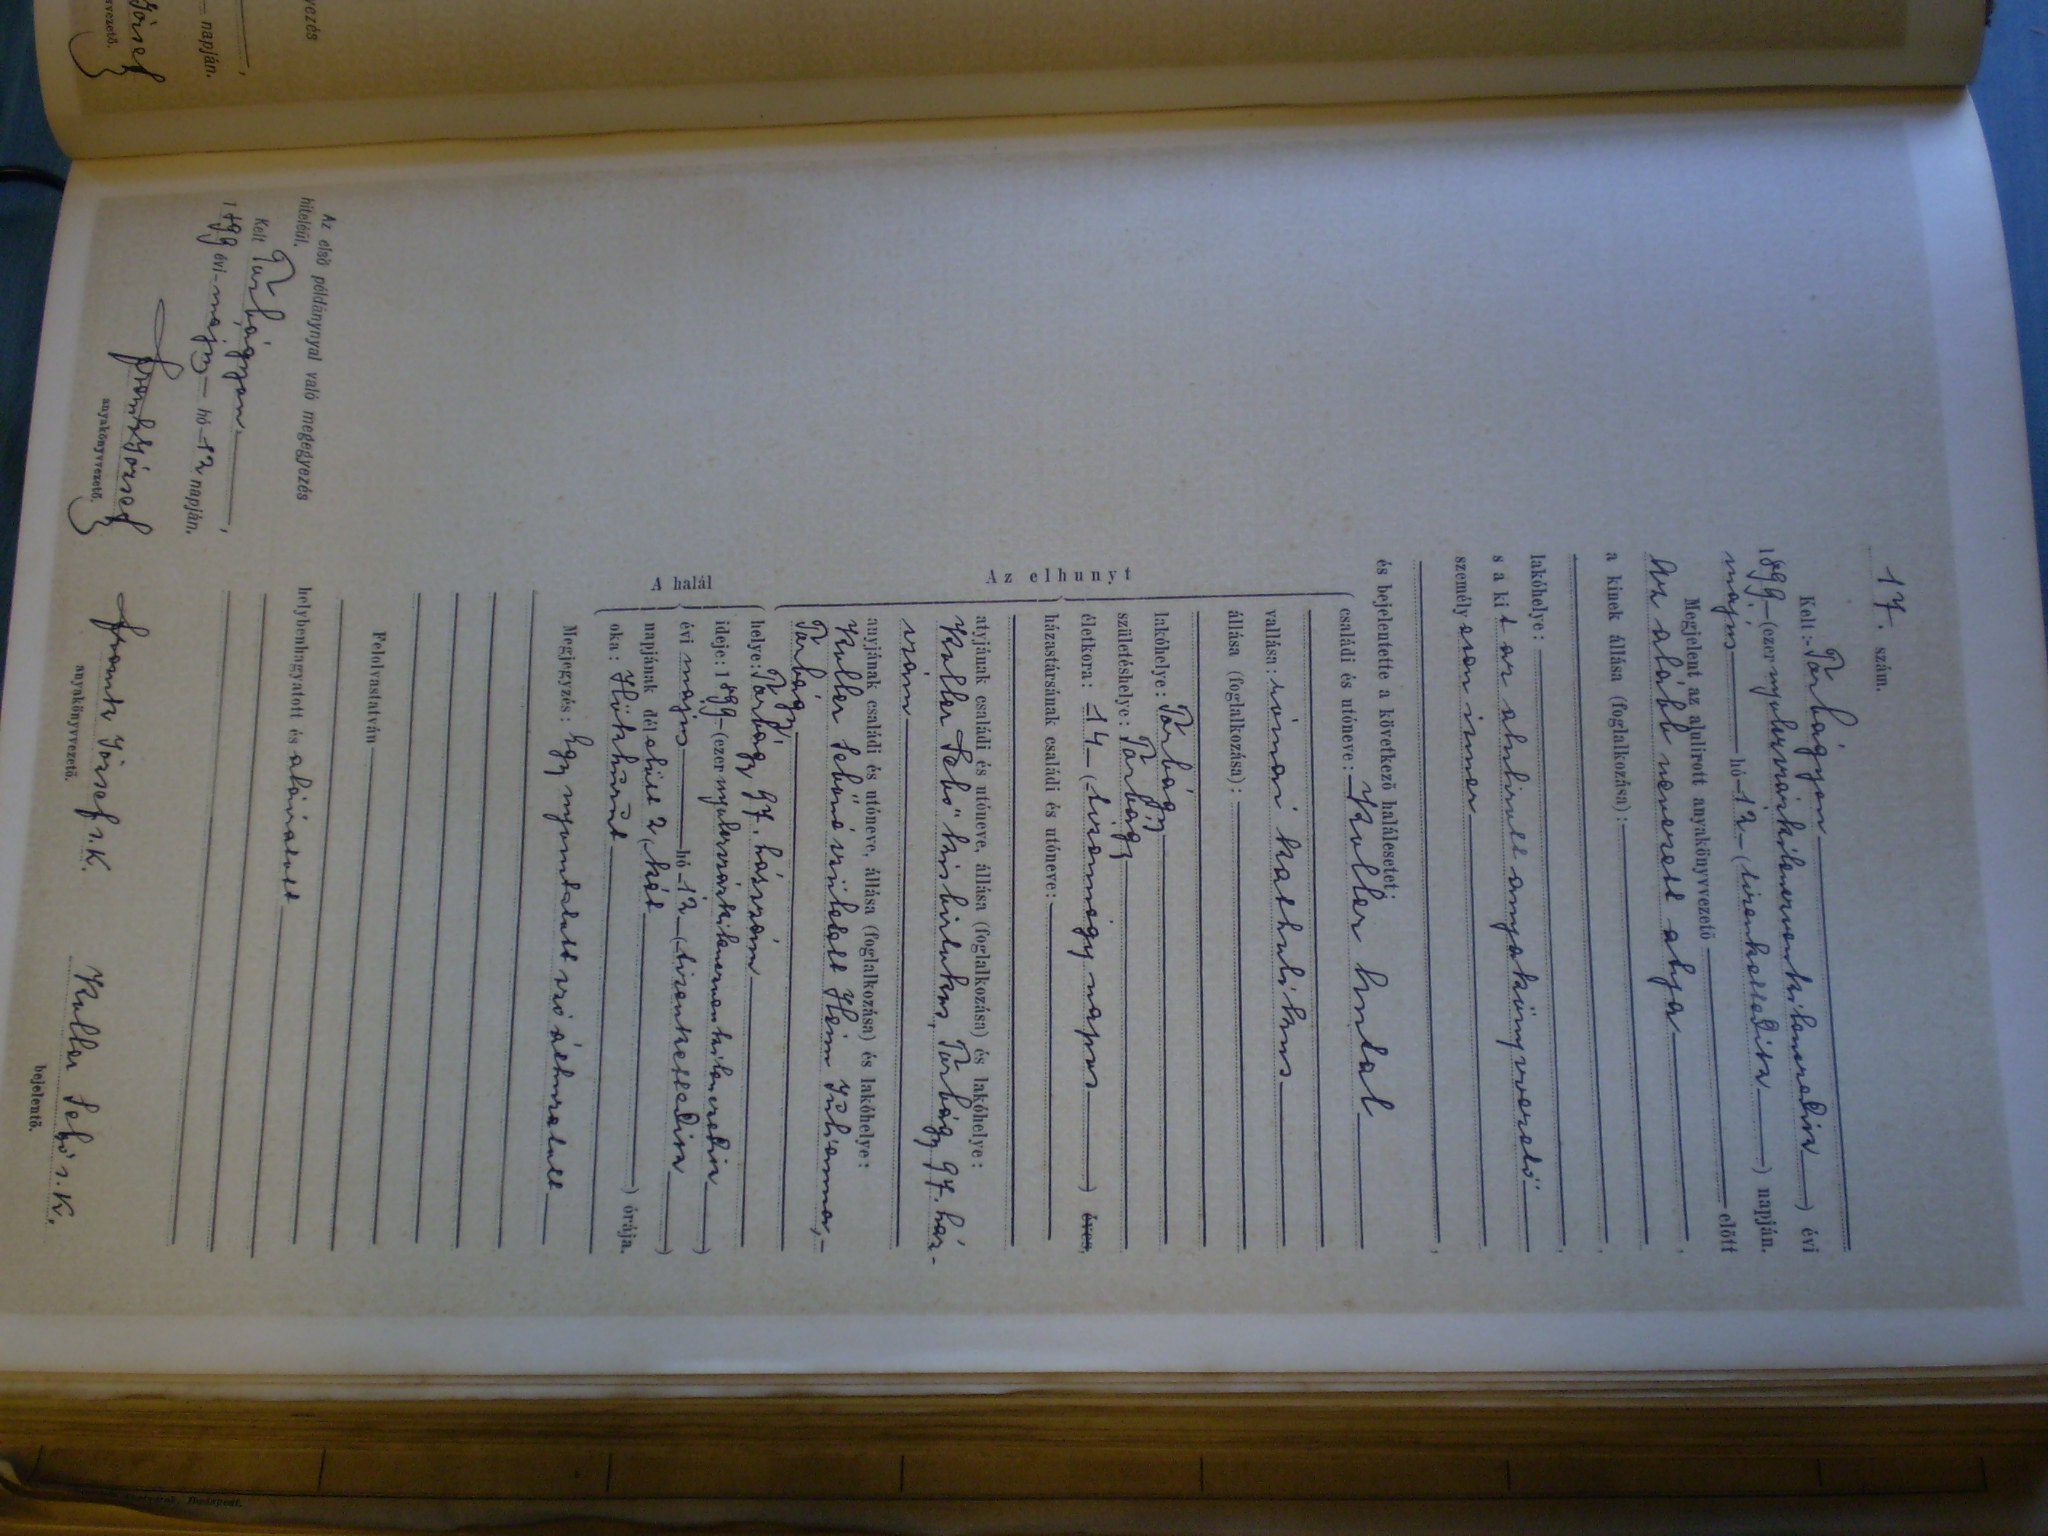 17. szám.
Kelt: Torbágyon
1899 (ezernyolczszázkilenczvenkilenczedik) évi
május hó 12 (tizenkettedik) napján.
Megjelent az alulirott anyakönyvvezető előtt
Az alább nevezett atyja,
a kinek állása (foglalkozása):
,
lakóhelye:
,
s a kit az alulirott anyakönyvvezető
személyesen ismer
,
és bejelentette a következő halálesetet:
Az elhunyt
családi és utóneve: Koller Antal
vallása: római katholikus
állása (foglalkozása):
lakóhelye: Torbágy
születéshelye: Torbágy
életkora: 14 (tizennégy napos) éves,
házastársának családi és utóneve:
atyjának családi és utóneve, állása (foglalkozása) és lakóhelye:
Koller Sebő kisbirtokos, Torbágy 97. ház-
szám
anyjának családi és utóneve, állása (foglalkozása) és lakóhelye:
Koller Sebőné született Heim Julianna,-
Torbágy
A halál
helye: Torbágy 97. házszám
ideje: 1899 (ezernyolczszázkilenczvenkilenczedik)
évi május hó 12 (tizenkettedik)
napjának délelőtt 2 (két) órája.
oka:
Megjegyzés: Egy nyomtatott szó áthuzatott
Felolvastatván
helybenhagyatott és aláiratott
József s. k.
anyakönyvvezető.
Koller Sebő s. k.
bejelentő.
Az első példánynyal való megegyezés
hiteléül.
Kelt Torbágyon,
1899 évi május hó 12 napján.
József
anyakönyvvezető.
József
napján.